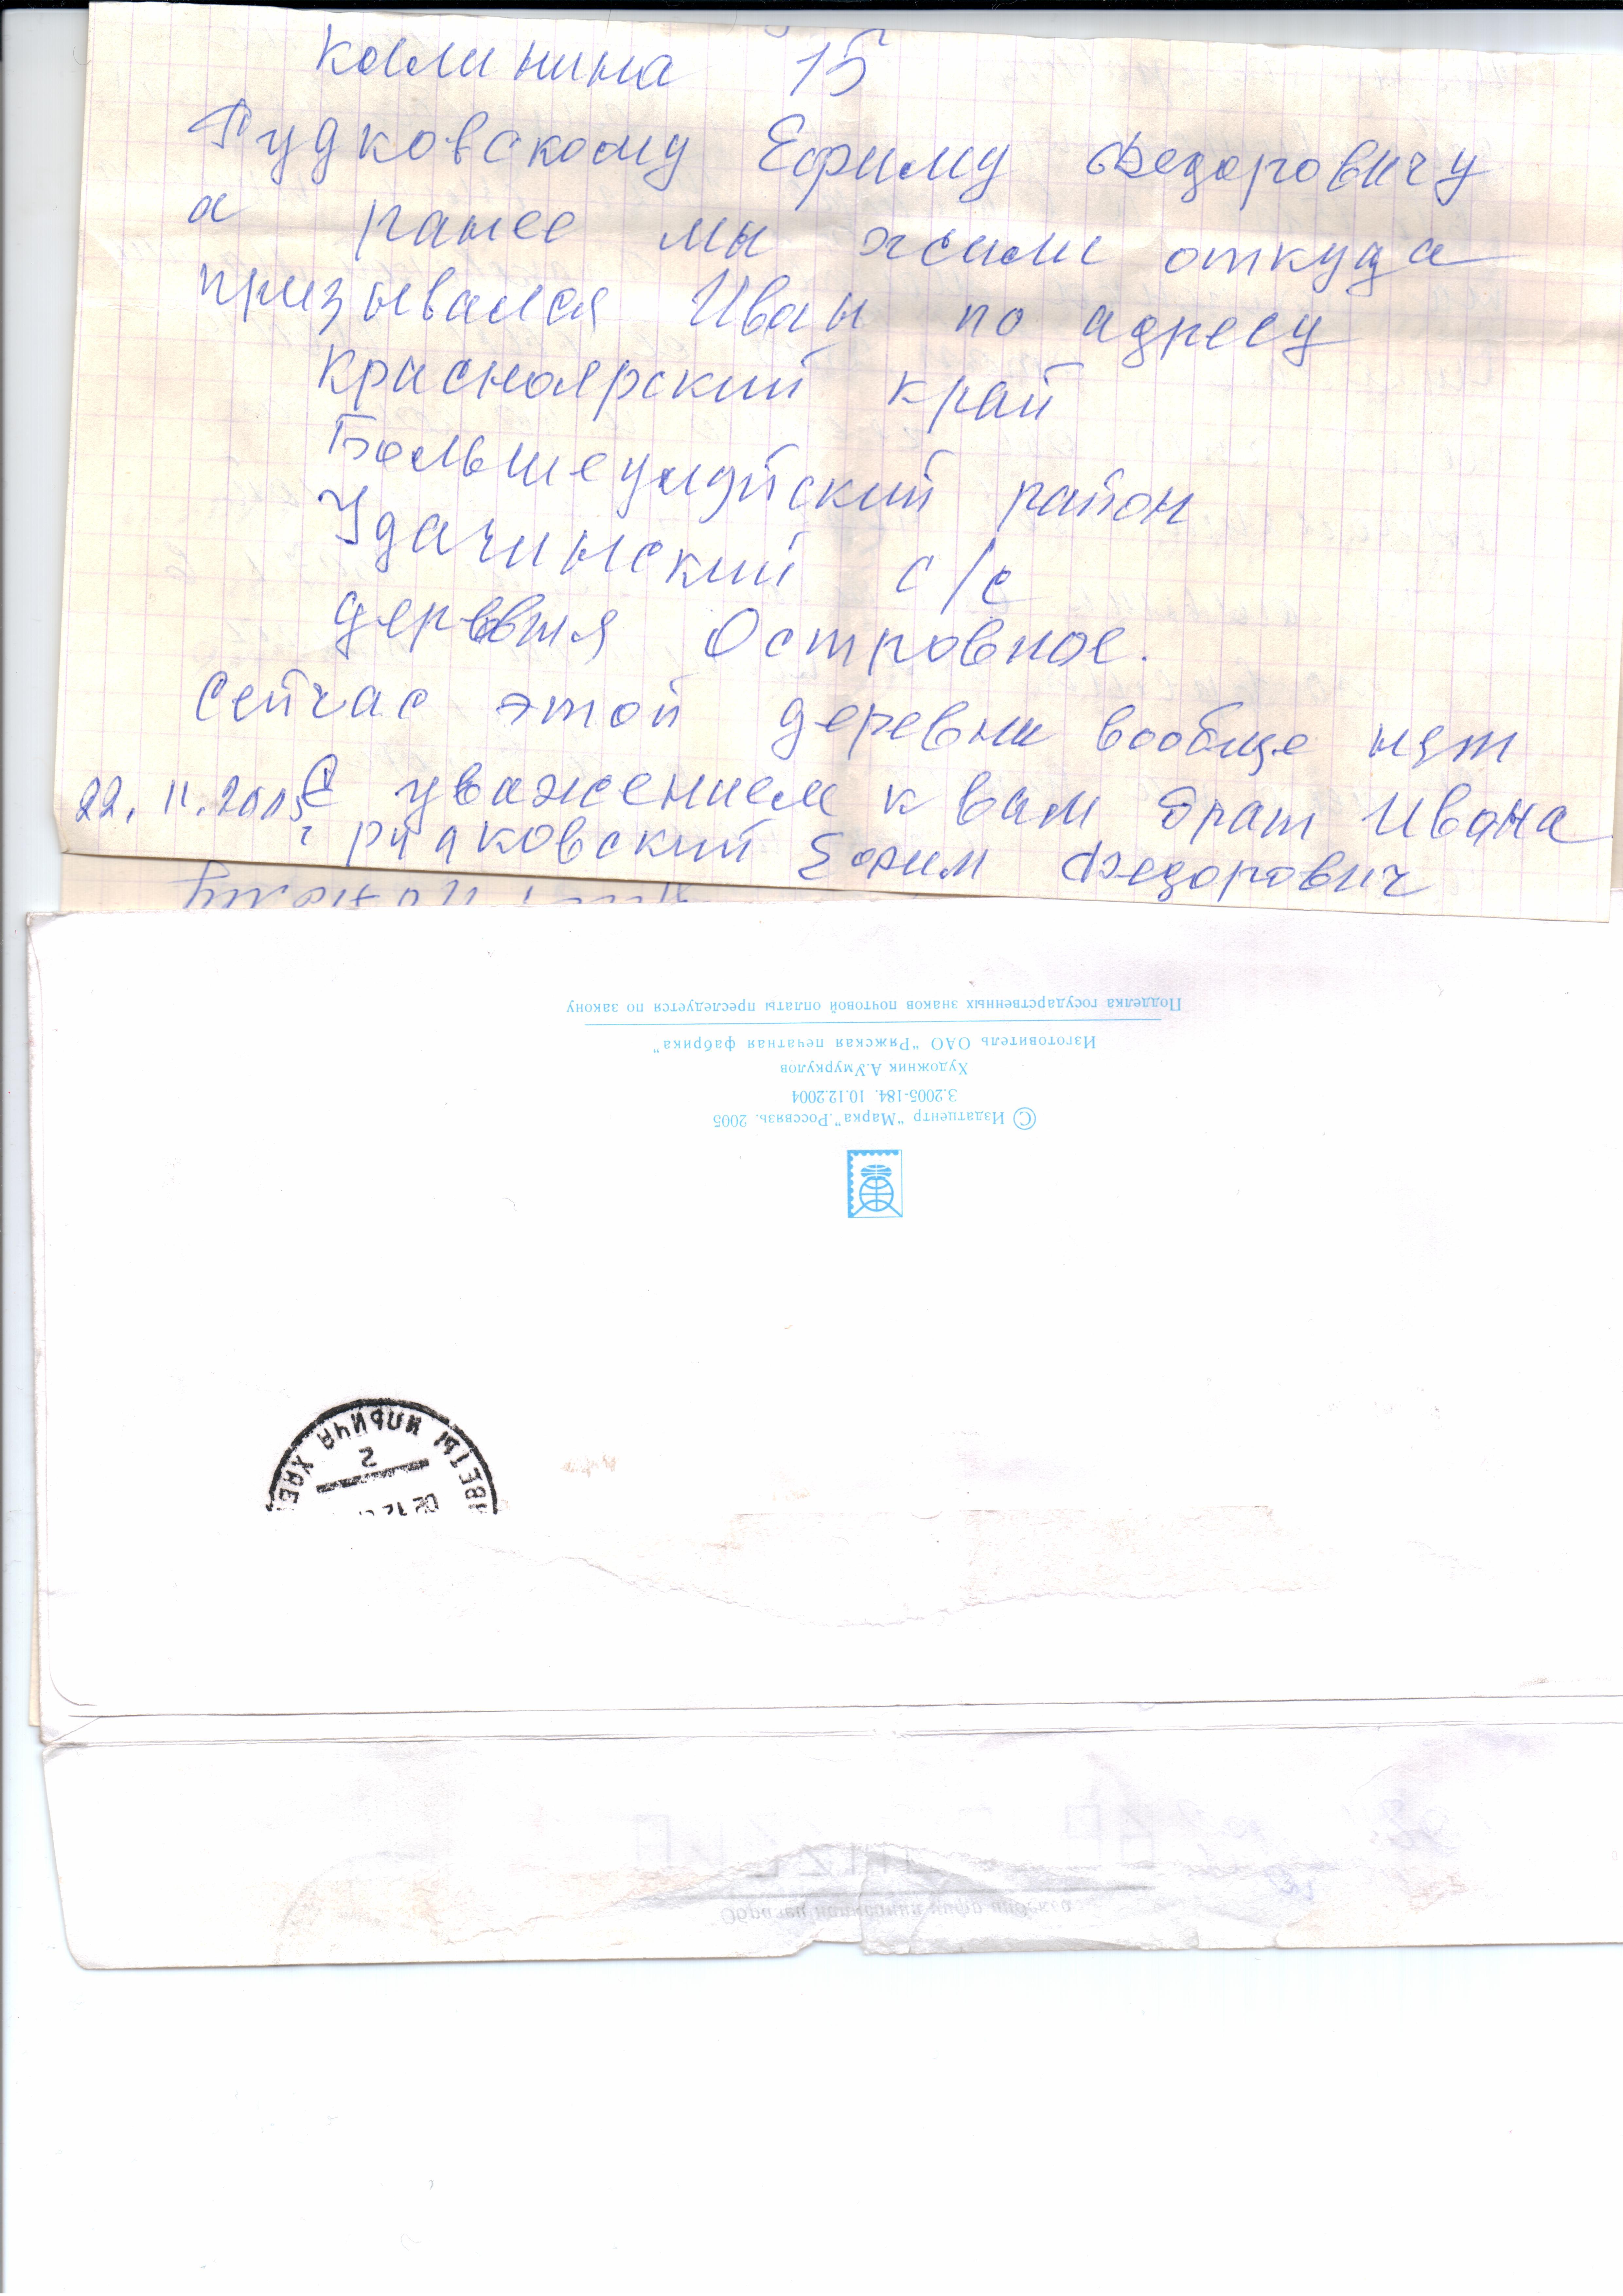 Калинина 15
Рудковскому Ефиму Федоровичу
а ранее мы жили откуда
призывался Иван по адресу
Красноярский край
Большеулуйский район
Удачинский с/с
деревня Островное.
Сейчас этой деревни вообще нет
22.11.2005 С уважением к вам брат Ивана
Рудковский Ефим Федорович
Подделка государственных знаков почтовой оплаты преследуется по закону
Изготовитель ОАО "Ряжская печатная фабрика"
Художник А.Умуркулов
З.2005-184. 10.12.2004
© Издатцентр "Марка".Россвязь. 2005
ЗАВЕТЫ ИЛЬИЧА ХАБ
2
02 12